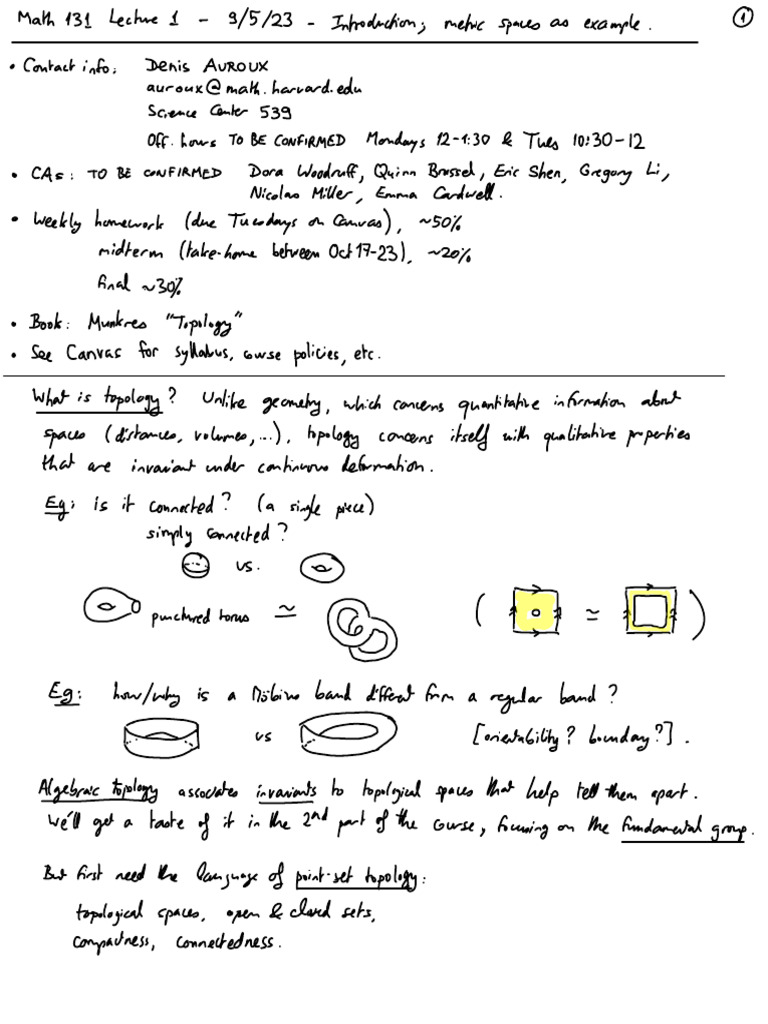 Math 131 Lecture 1 - 9/5/23 - Introduction; metric spaces as example.
1
• Contact info: Denis AUROUX
auroux@math.harvard.edu
Science Center 539
Off. hours TO BE CONFIRMED Mondays 12-1:30 & Tues 10:30-12
• CAs: TO BE CONFIRMED Dora Woodruff, Quinn Brussel, Eric Shen, Gregory Li,
Nicolas Miller, Emma Cardwell.
• Weekly homework (due Tuesdays on Canvas), ~50%
midterm (take-home between Oct 17-23), ~20%
final ~30%
• Book: Munkres "Topology"
• See Canvas for syllabus, course policies, etc.
What is topology? Unlike geometry, which concerns quantitative information about
spaces (distances, volumes, ...), topology concerns itself with qualitative properties
that are invariant under continuous deformation.
Eg: is it connected? (a single piece)
simply connected?
vs.
punctured torus ≃
( ≃ )
Eg: how/why is a Möbius band different from a regular band?
vs [orientability? boundary?].
Algebraic topology associates invariants to topological spaces that help tell them apart.
We'll get a taste of it in the 2nd part of the course, focusing on the fundamental group.
But first need the language of point-set topology:
topological spaces, open & closed sets,
compactness, connectedness.